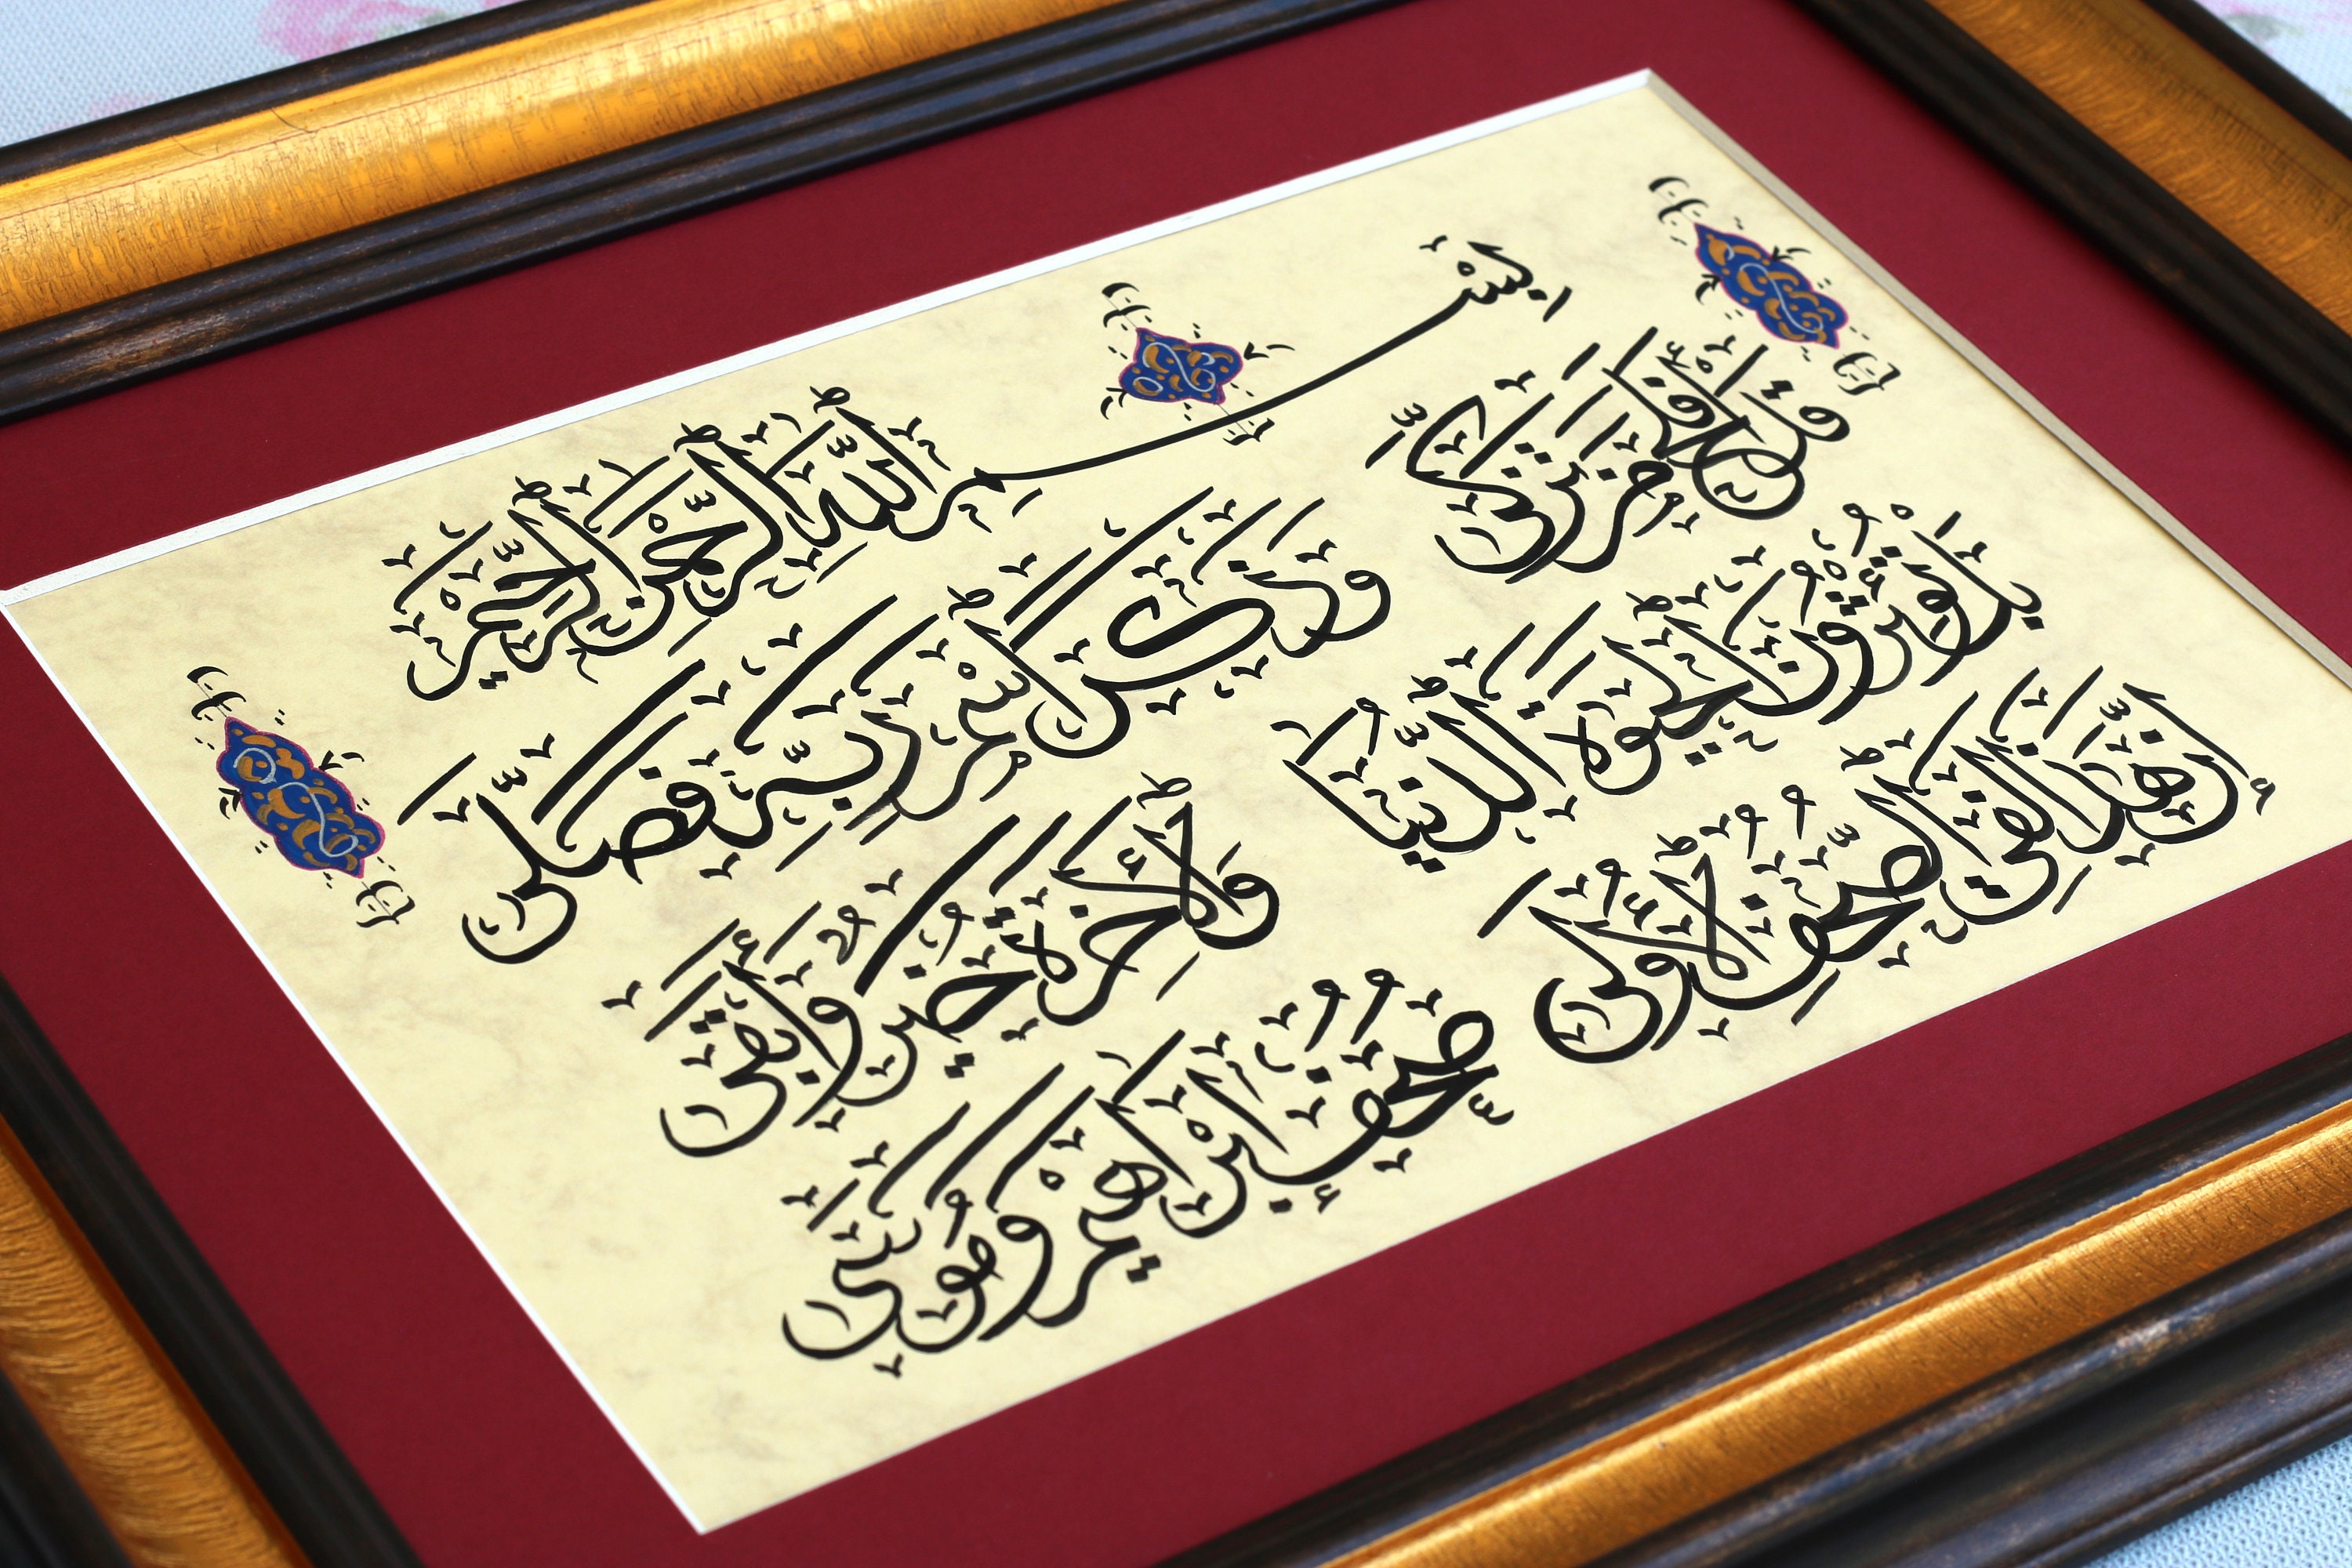 بِسْمِ اللَّهِ الرَّحْمٰنِ الرَّحِيمِ
قَدْ أَفْلَحَ مَنْ تَزَكَّىٰ وَذَكَرَ اسْمَ رَبِّهِ فَصَلَّىٰ
بَلْ تُؤْثِرُونَ الْحَيَوٰةَ الدُّنْيَا وَالْاٰخِرَةُ خَيْرٌ وَأَبْقَىٰ
إِنَّ هٰذَا لَفِي الصُّحُفِ الْأُولَىٰ صُحُفِ إِبْرَاهِيمَ وَمُوسَىٰ